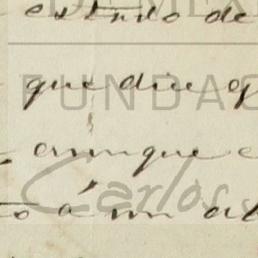 estudo de
FUNDAC
que dice q
aunque e
Carlos
to á un al